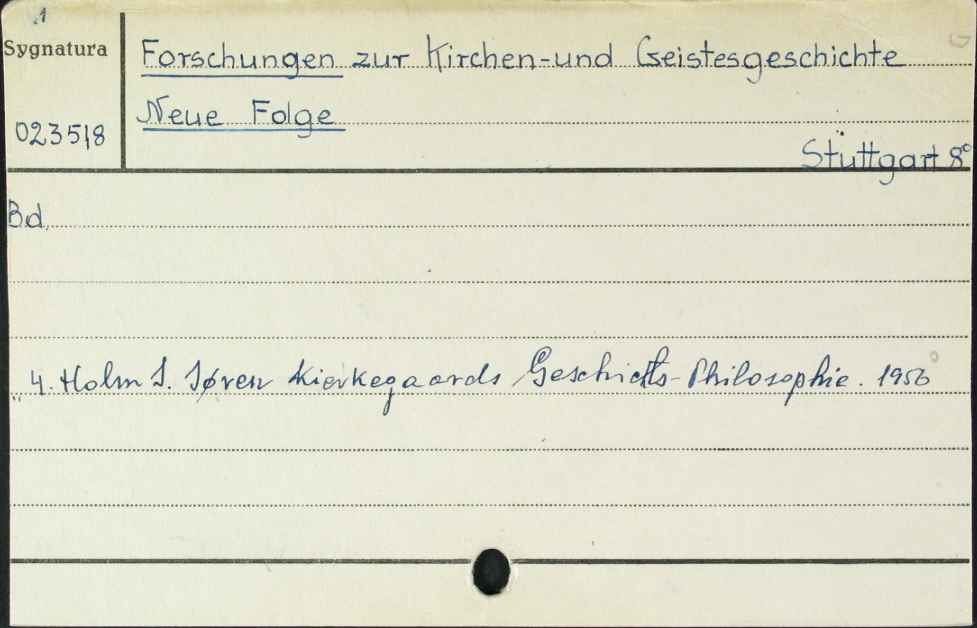 1
Sygnatura
Forschungen zur Kirchen-und Geistesgeschichte
Neue Folge
023518
Stuttgart 8°
Bd.
4. Holm S. Søren Kierkegaards Geschichts-Philosophie. 1956